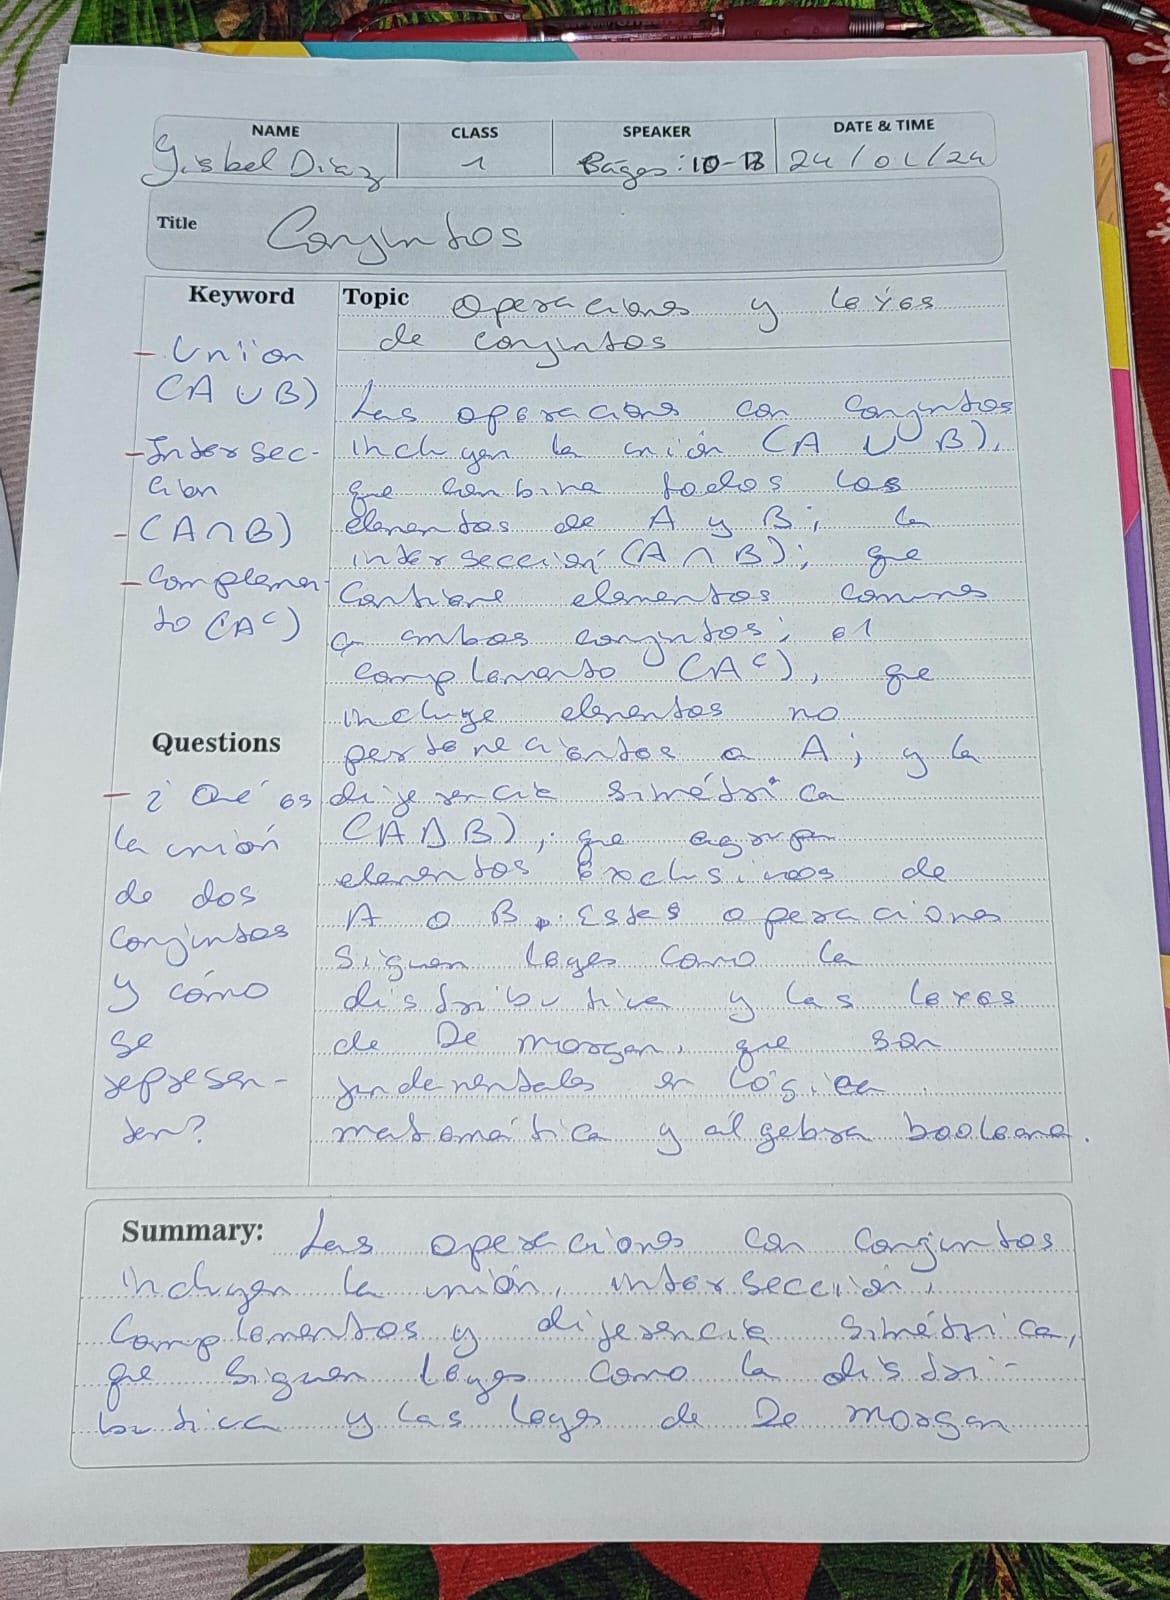 NAME CLASS SPEAKER DATE & TIME
Gisbel Diaz 1 Bages: 10-13 24/01/24
Title Conjuntos
Keyword
- Unión
(A ∪ B)
- Intersec-
ción
- (A ∩ B)
- Complemen-
to (Aᶜ)
Questions
- ¿Qué es
la unión
de dos
conjuntos
y cómo
se
represen-
ten?
Topic Operaciones y leyes
de conjuntos
Las operaciones con conjuntos
incluyen la unión (A ∪ B),
que combina todos los
elementos de A y B; la
intersección (A ∩ B); que
contiene elementos comunes
a ambos conjuntos; el
complemento (Aᶜ), que
incluye elementos no
pertenecientes a A; y la
diferencia simétrica
(A Δ B), que agrupa
elementos exclusivos de
A o B. Estas operaciones
siguen leyes como la
distributiva y las leyes
de De morgan, que son
fundamentales en lógica
matemática y álgebra booleana.
Summary: Las operaciones con conjuntos
incluyen la unión, intersección,
complementos y diferencia simétrica,
que siguen leyes como la distri-
butiva y las leyes de De morgan